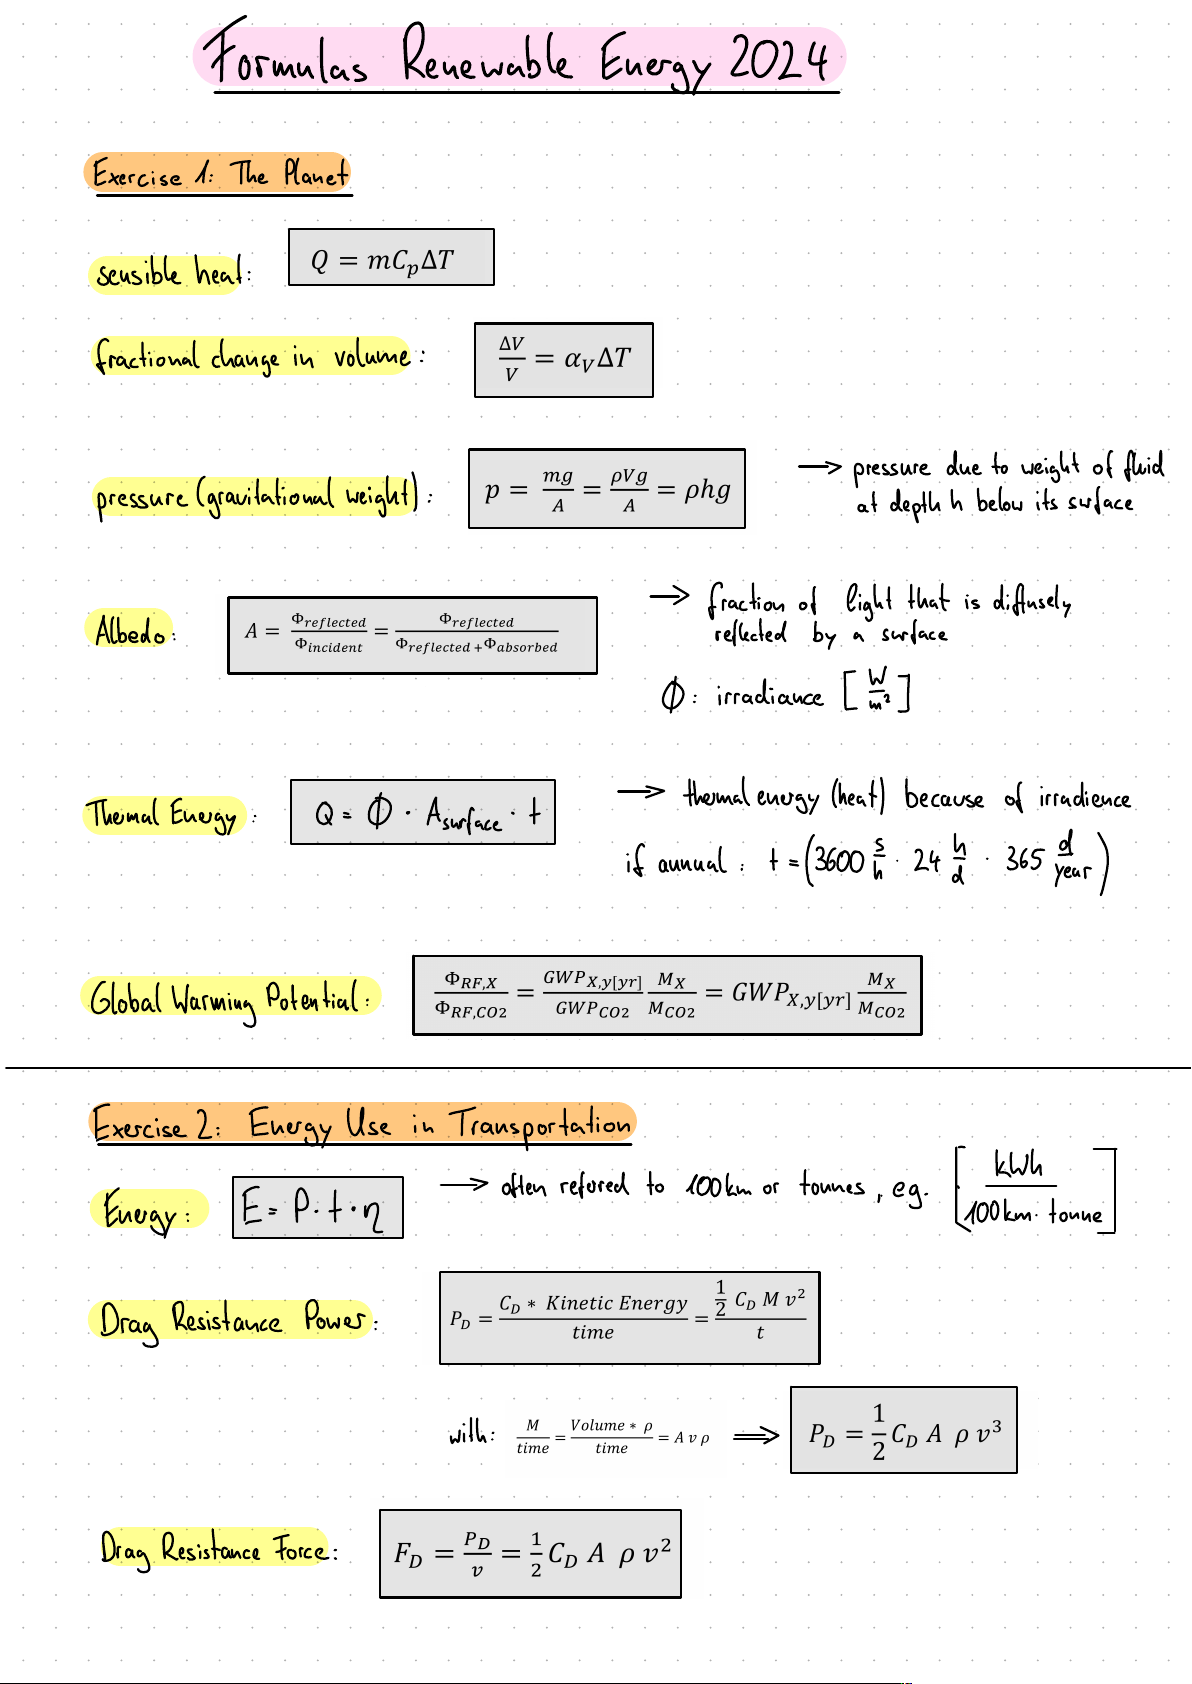 Formulas Renewable Energy 2024
Exercise 1: The Planet
sensible heat: Q = mC_pΔT
fractional change in volume: ΔV/V = α_VΔT
pressure (gravitational weight): p = mg/A = ρVg/A = ρhg → pressure due to weight of fluid
at depth h below its surface
Albedo: A = Φ_reflected/Φ_incident = Φ_reflected/(Φ_reflected + Φ_absorbed) → fraction of light that is diffusely
reflected by a surface
Φ: irradiance [W/m²]
Thermal Energy: Q = Φ · A_surface · t → thermal energy (heat) because of irradience
if annual: t = (3600 s/h · 24 h/d · 365 d/year)
Global Warming Potential: Φ_RF,X/Φ_RF,CO2 = GWP_X,y[yr]/GWP_CO2 M_X/M_CO2 = GWP_X,y[yr] M_X/M_CO2
Exercise 2: Energy Use in Transportation
Energy: E = P · t · η → often refered to 100km or tonnes, eg. [kWh/100km · tonne]
Drag Resistance Power: P_D = C_D * Kinetic Energy/time = ½ C_D M v²/t
with: M/time = Volume * ρ/time = A v ρ ⟹ P_D = 1/2 C_D A ρ v³
Drag Resistance Force: F_D = P_D/v = 1/2 C_D A ρ v²